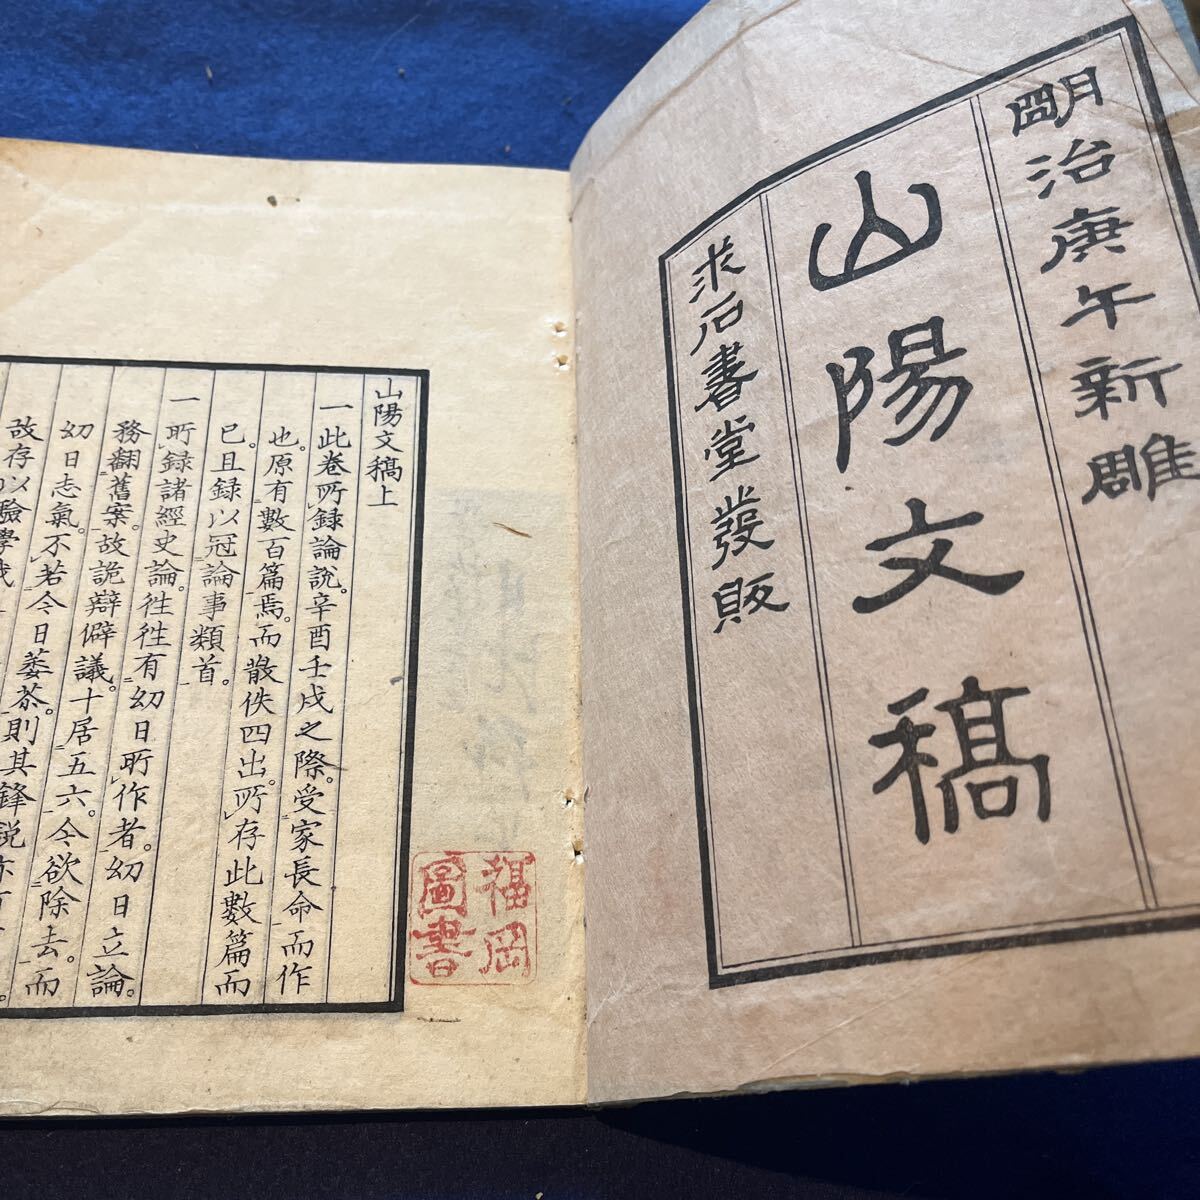 明治庚午新雕
山陽文稿
求石書堂發販
山陽文稿上
一此卷所録論説。辛酉壬戌之際。受家長命而作
也。原有數百篇焉。而散佚四出。所存此數篇而
已。且録以冠論事類首。
一所録諸經史論。徃徃有幼日所作者。幼日立論。
務翻舊案。故詭辯僻議。十居五六。今欲除去。而
幼日志氣。不若今日萎苶。則其鋒説亦
故存以驗學
福岡
圖書